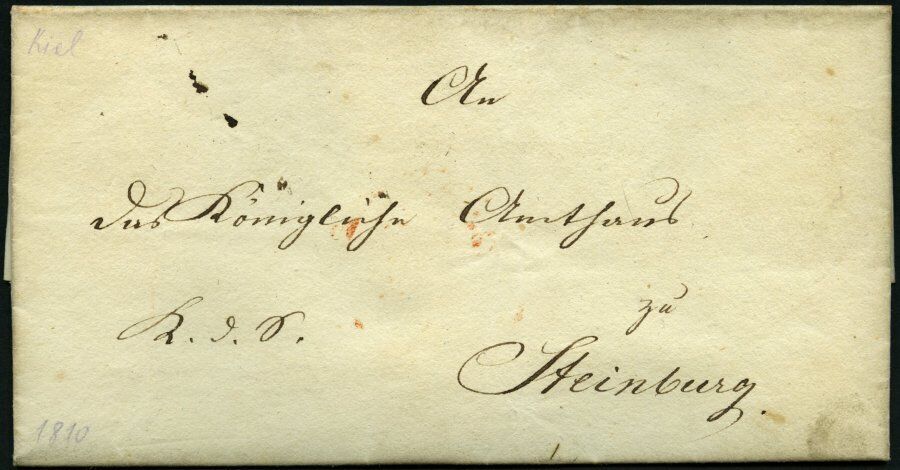 Kiel
An
das Königliche Amthaus
zu
K. d. S.
Steinburg.
1810